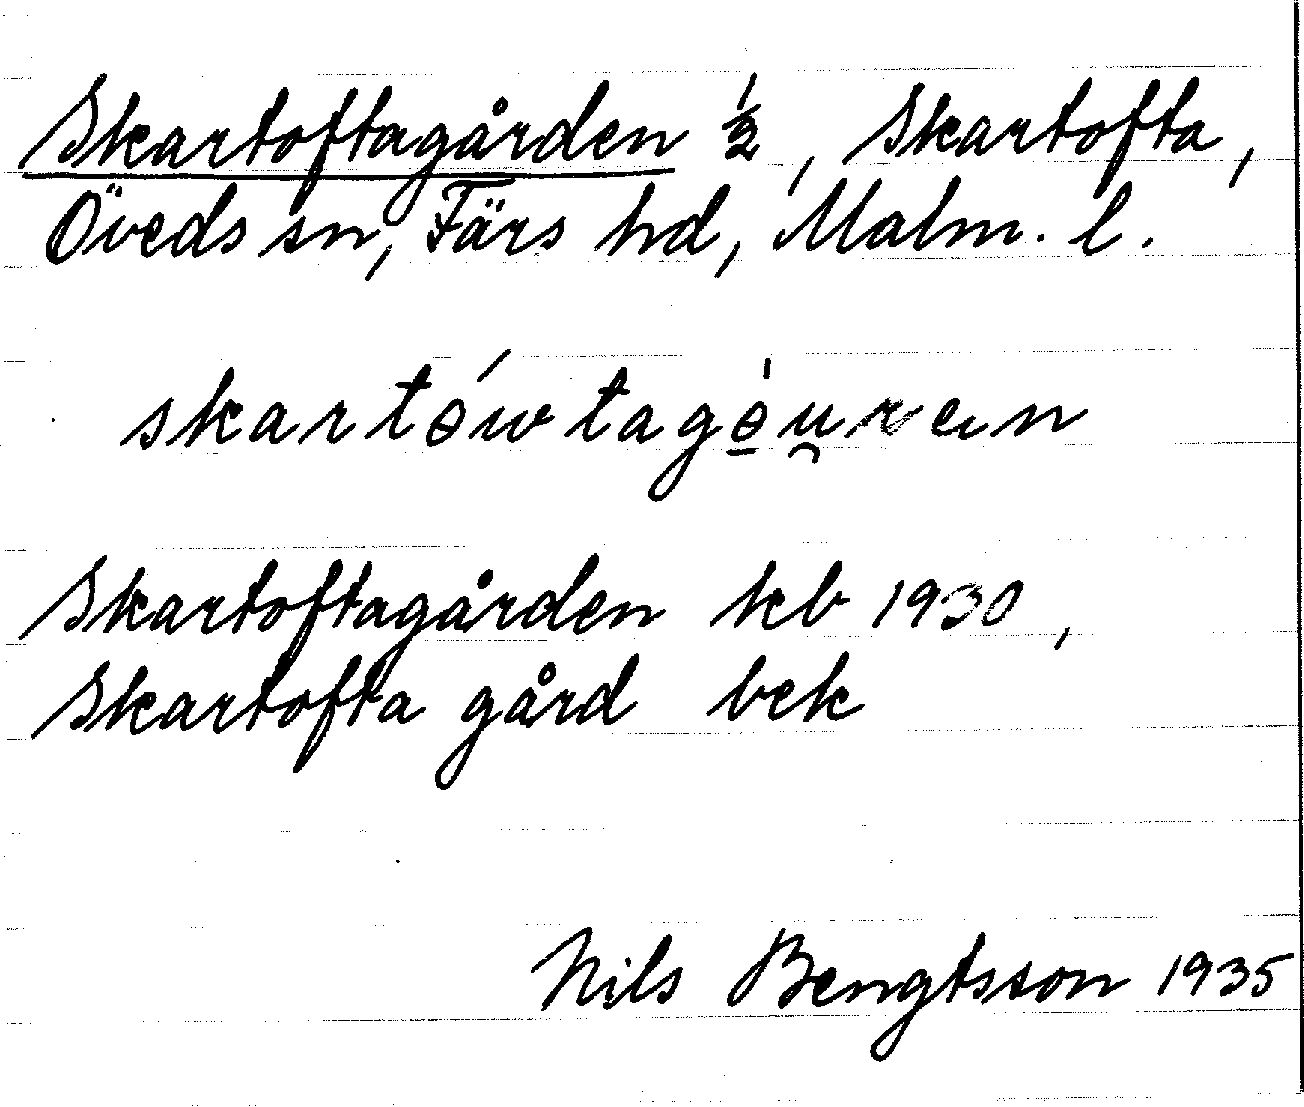 Skartoftagården ½, Skartofta,
Öveds sn, Färs hd, Malm. l.
skartówtagө̠́u̯ren
Skartoftagården kb 1930,
Skartofta gård bek
Nils Bengtsson 1935